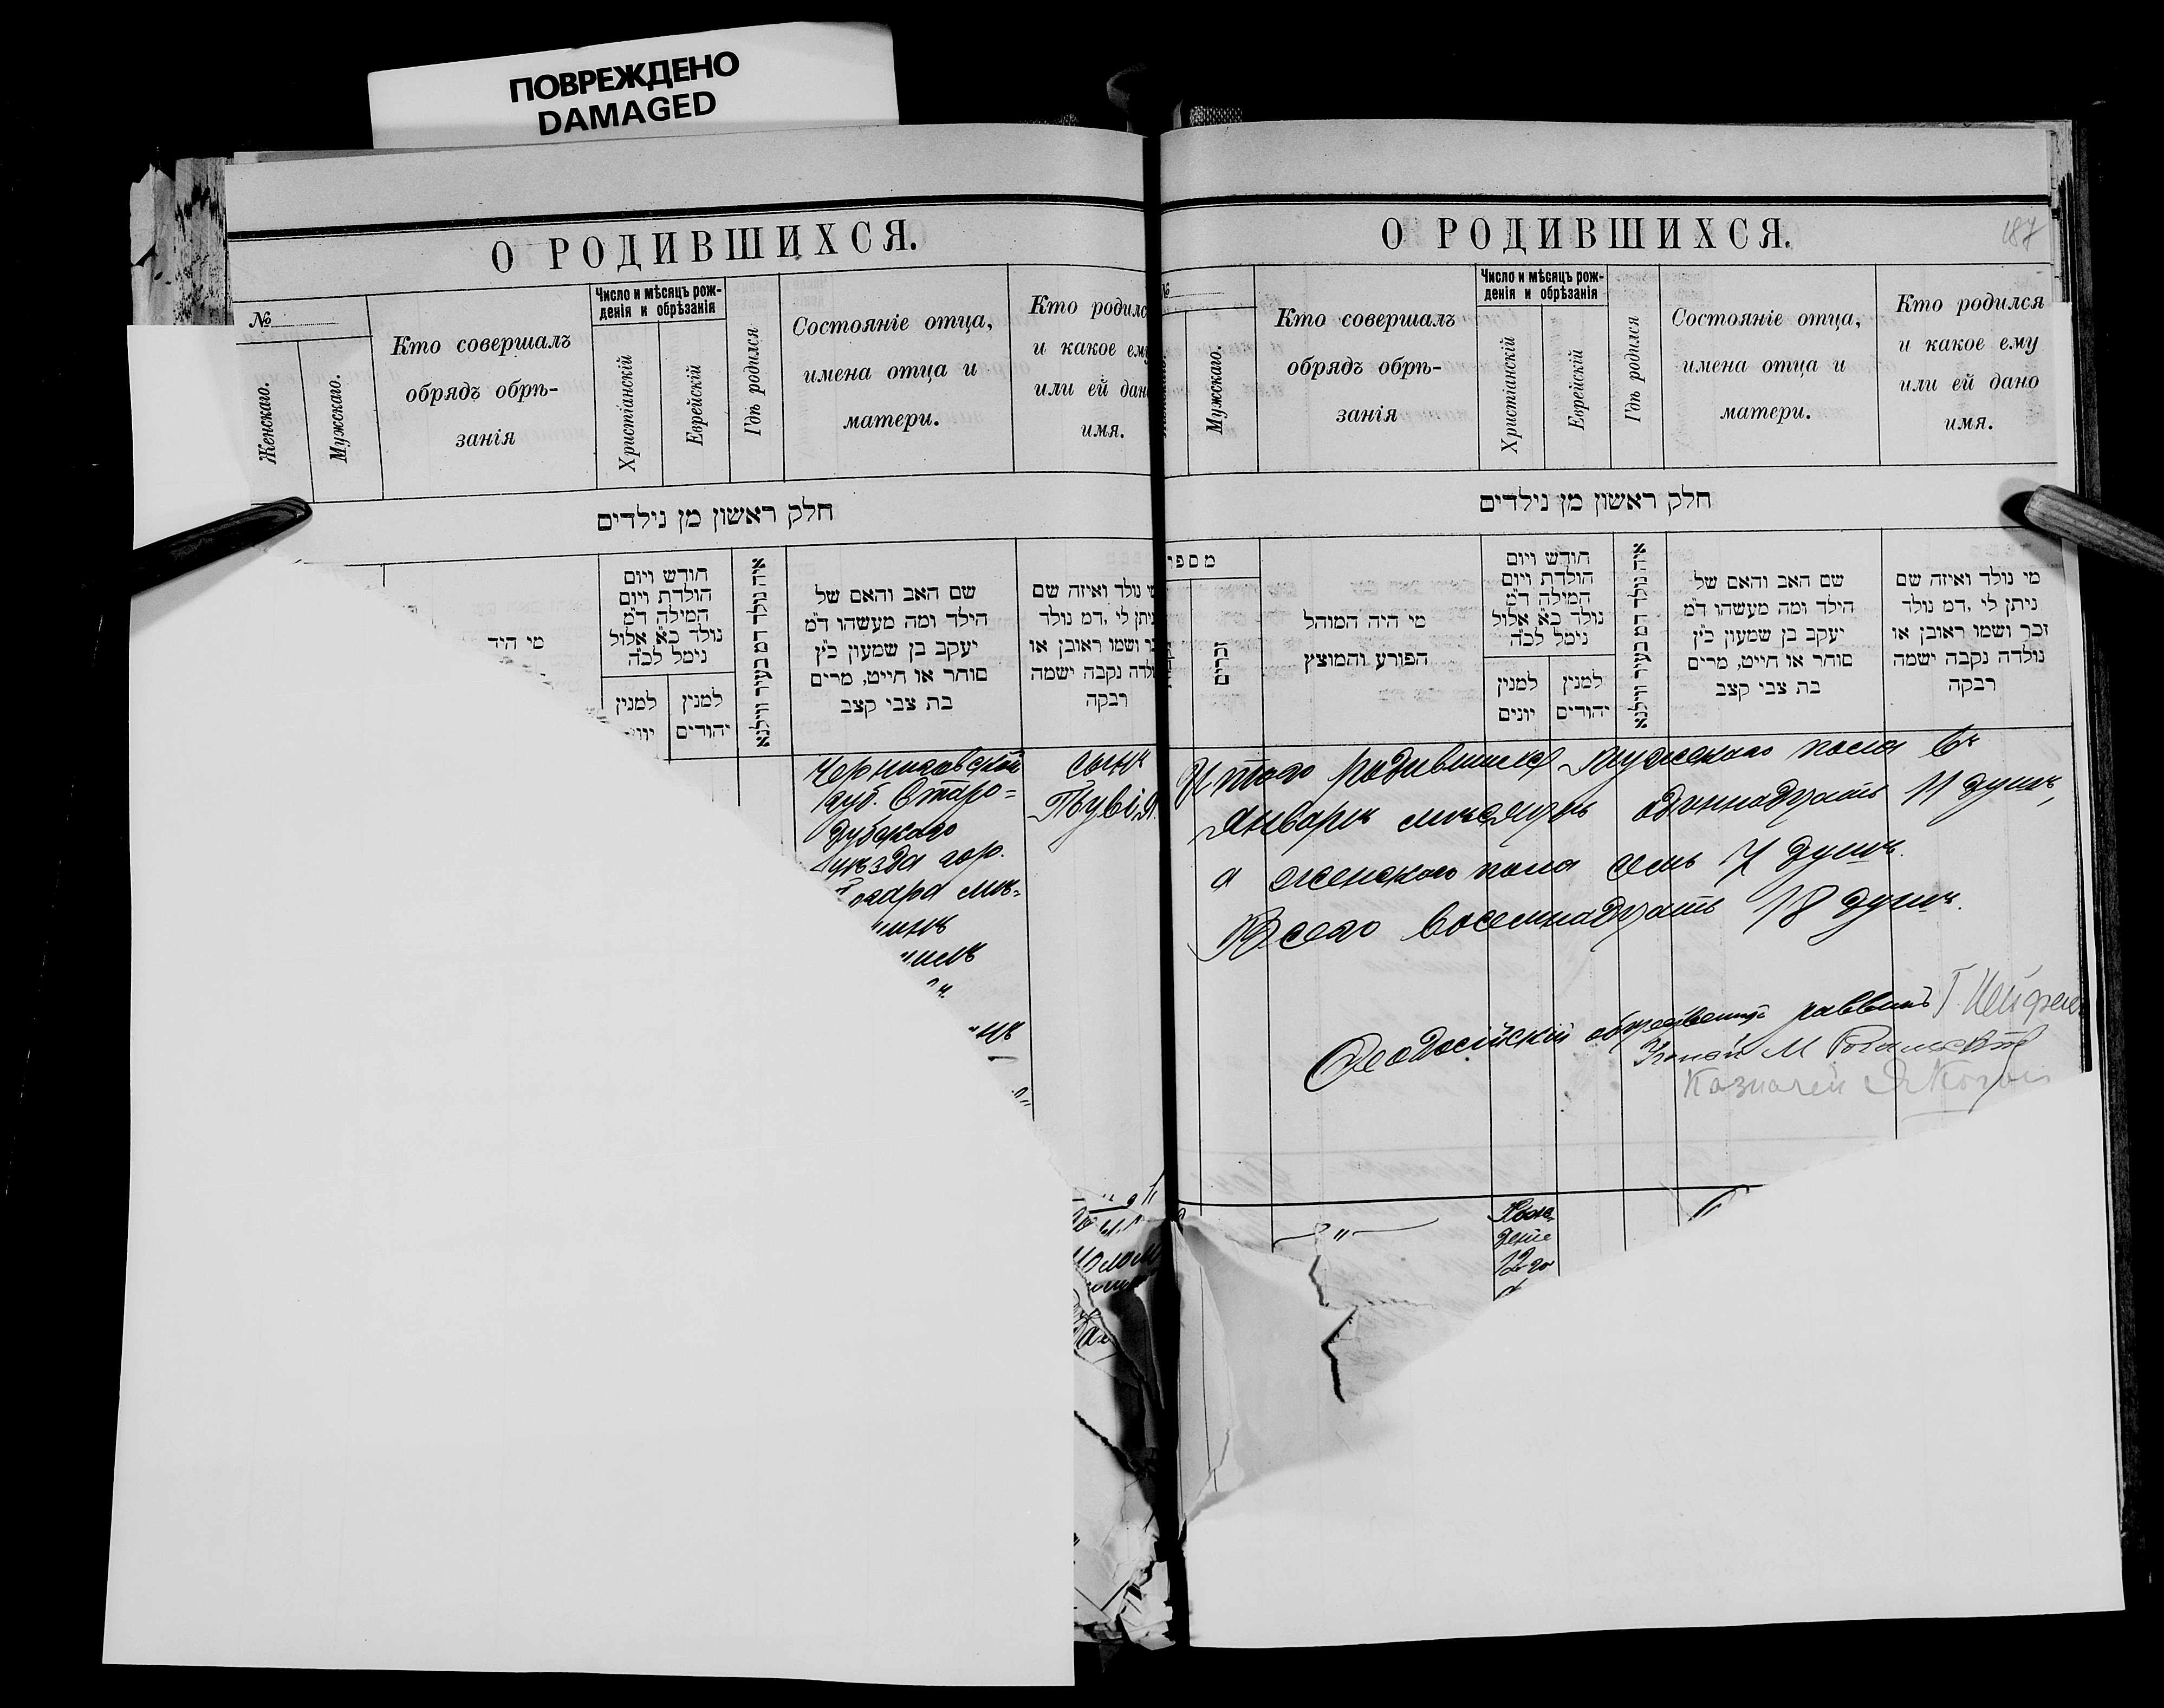 ПОВРЕЖДЕНО
DAMAGED
О РОДИВШИХСЯ.
№
Женскаго.
Мужскаго.
Кто совершалъ
обрядъ обрѣ-
занія
Число и мѣсяцъ рож-
денія и обрѣзанія
Христіанскій
Еврейскій
Гдѣ родился
Состояніе отца,
имена отца и
матери.
Кто родилс
и какое ему
или ей дано
имя.
חלק ראשון מן נילדים
מי היד
חודש ויום
הולדת ויום
המילה ד"מ
נולד כ"א אלול
נימל לכ"ה
למנין
למנין
יהודים
איה נולד דמ בעיר ווילנא
שם האב והאם של
הילד ומה מעשהו ד"מ
יעקב בן שמעון כ"ץ
סוחר או חייט, מרים
בת צבי קצב
נולד ואיזה שם
ניתן לי ,דמ נולד
ושמו ראובן או
נקבה ישמה
רבקה
Черниговской
губ. Старо=
дубскаго
уѣзда гор.
мѣ=
сынъ
Тувія
О РОДИВШИХСЯ.
187
№
Мужскаго.
Кто совершалъ
обрядъ обрѣ-
занія
Число и мѣсяцъ рож-
денія и обрѣзанія
Христіанскій
Еврейскій
Гдѣ родился
Состояніе отца,
имена отца и
матери.
Кто родился
и какое ему
или ей дано
имя.
חלק ראשון מן נילדים
מספ
זכרים
מי היה המוהל
הפורע והמוצץ
חודש ויום
הולדת ויום
המילה ד"מ
נולד כ"א אלול
נימל לכ"ה
למנין
יונים
למנין
יהודים
איה נולד דמ בעיר ווילנא
שם האב והאם של
הילד ומה מעשהו ד"מ
יעקב בן שמעון כ"ץ
סוחר או חייט, מרים
בת צבי קצב
מי נולד ואיזה שם
ניתן לי ,דמ נולד
זכר ושמו ראובן או
נולדה נקבה ישמה
רבקה
Итого родившихся мужскаго пола въ
Январѣ мѣсяцѣ одиннадцать 11 душъ,
а женскаго пола семь 7 душъ.
Всего восемнадцать 18 душъ.
Ѳеодосійскій общественный раввинъ Г.
М
Казначей
Рож
деніе
12 го